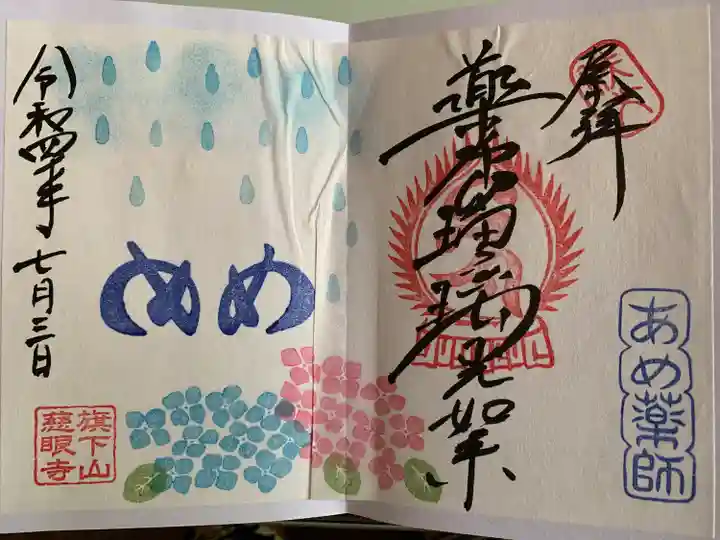 奉拝
薬師瑠璃光如来
あめ薬師
め め
令和四年七月三日
旗下山
慈眼寺